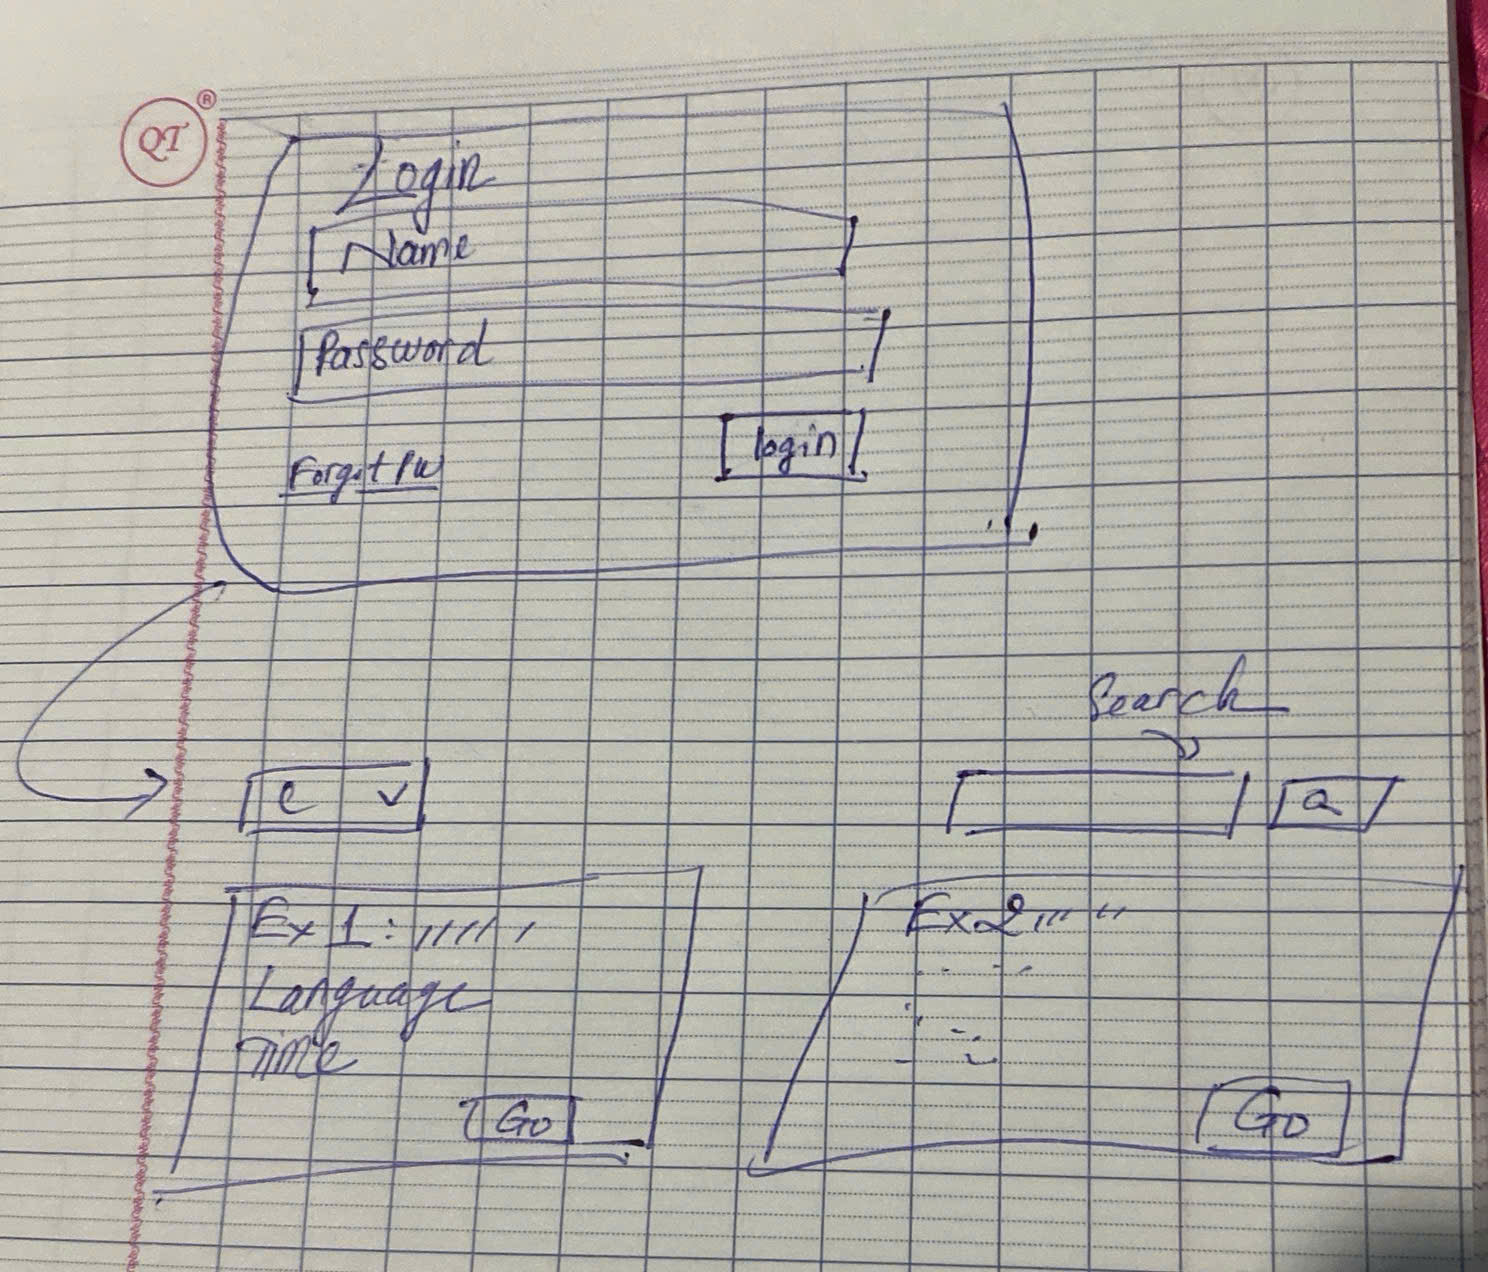 QT ®
Login
Name
Password
Forgot PW
login
Search
C
Q
Ex 1:
Language
Time
Go
Ex 2
Go